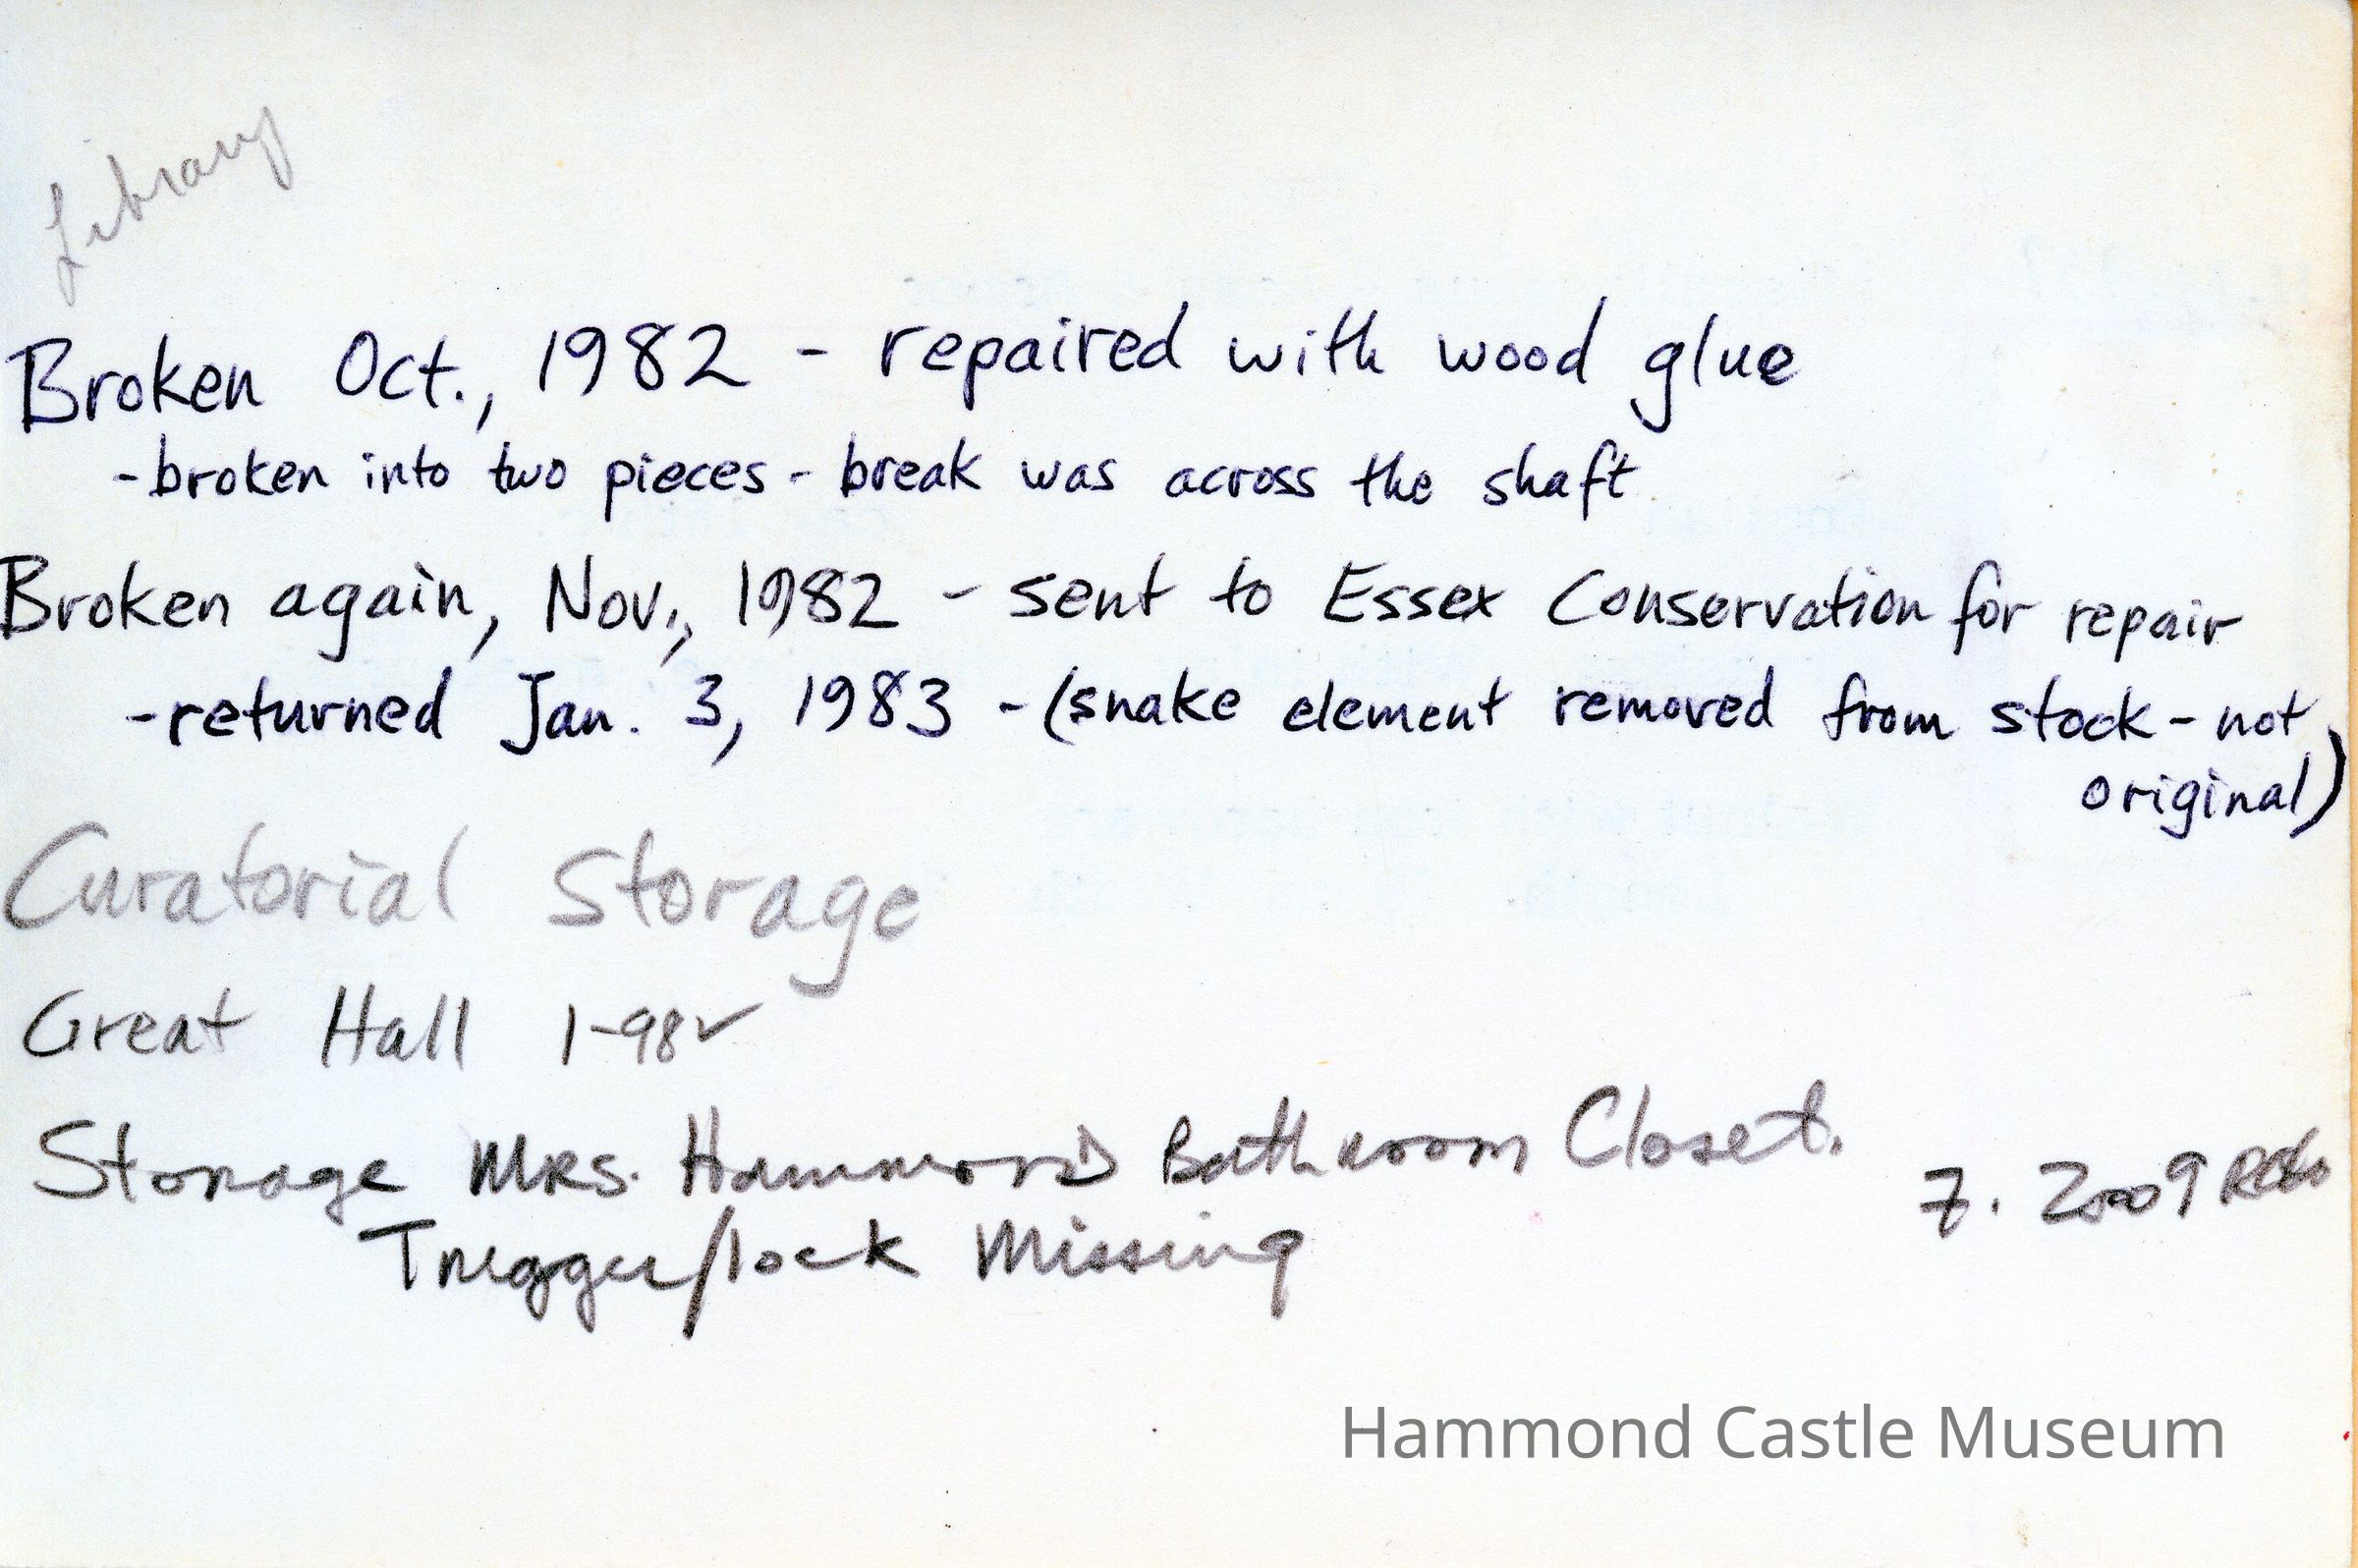 Library
Broken Oct., 1982 - repaired with wood glue
-broken into two pieces - break was across the shaft
Broken again, Nov., 1982 - sent to Essex Conservation for repair
-returned Jan. 3, 1983 - (snake element removed from stock - not
original)
Curatorial Storage
Great Hall 1-98✓
Storage Mrs. Hammond Bathroom Closet.
7. 2009
Trigger/lock Missing
Hammond Castle Museum